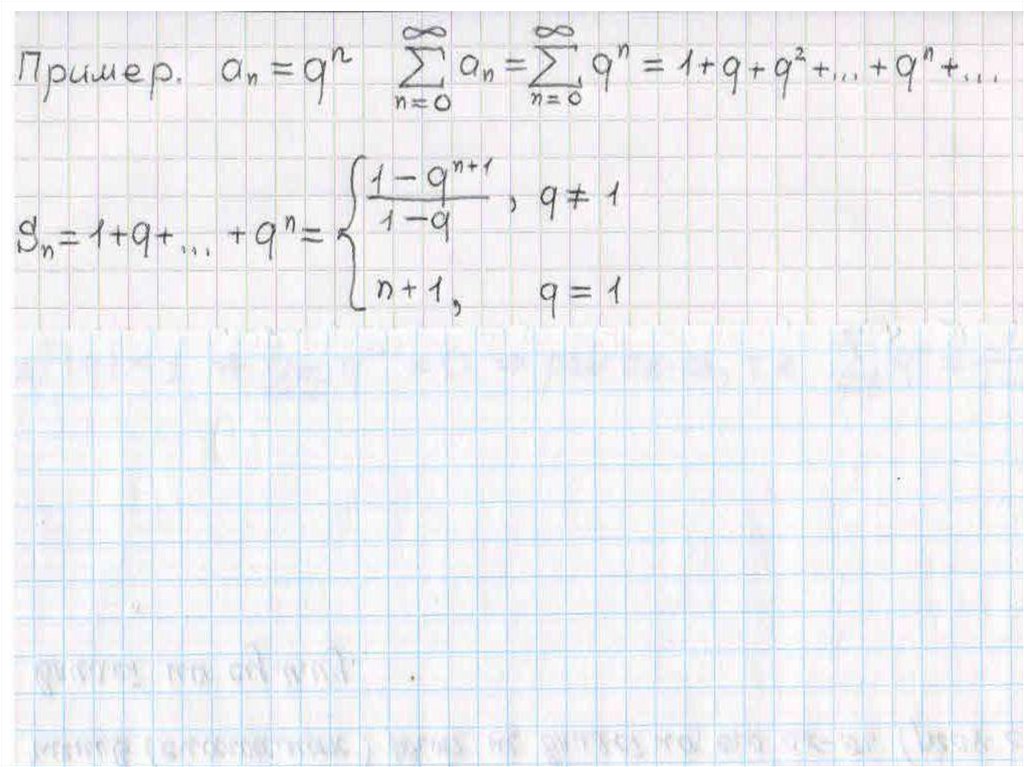 Пример. aₙ = qⁿ ∑_{n=0}^{∞} aₙ = ∑_{n=0}^{∞} qⁿ = 1 + q + q² + ... + qⁿ + ...
Sₙ = 1 + q + ... + qⁿ = { (1 - qⁿ⁺¹)/(1 - q), q ≠ 1
n + 1, q = 1